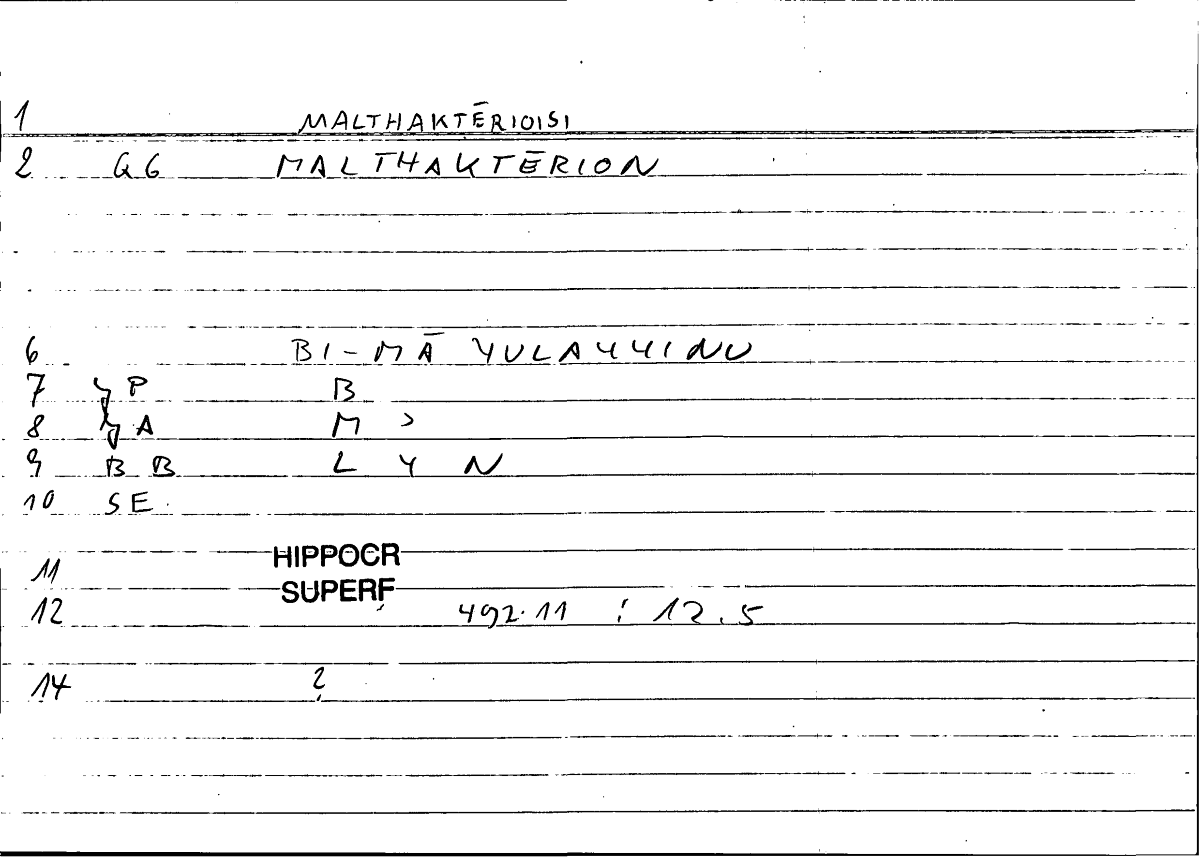 1 MALTHAKTĒRIOISI
2 GG MALTHAKTĒRION
6 BI-MĀ YULAYYINU
7 YP B
8 YA M ɔ
9 BB L Y N
10 SE
11 HIPPOCR
SUPERF
12 492.11 : 12.5
14 ?